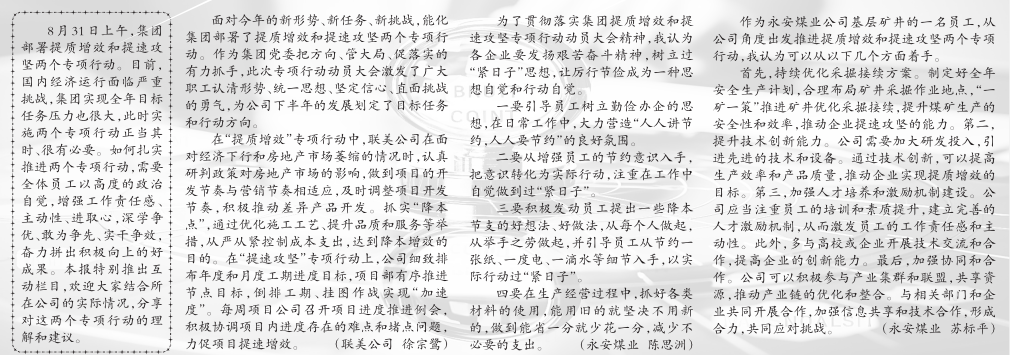 8月31日上午，集团
部署提质增效和提速攻
坚两个专项行动。目前，
国内经济运行面临严重
挑战，集团实现全年目标
任务压力也很大，此时实
施两个专项行动正当其
时、很有必要。如何扎实
推进两个专项行动，需要
全体员工以高度的政治
自觉，增强工作责任感、
主动性、进取心，深学争
优、敢为争先、实干争效，
奋力拼出积极向上的好
成果。本报特别推出互
动栏目，欢迎大家结合所
在公司的实际情况，分享
对这两个专项行动的理
解和建议。
面对今年的新形势、新任务、新挑战，能化
集团部署了提质增效和提速攻坚两个专项行
动。作为集团党委把方向、管大局、促落实的
有力抓手，此次专项行动动员大会激发了广大
职工认清形势、统一思想、坚定信心、直面挑战
的勇气，为公司下半年的发展划定了目标任务
和行动方向。
在“提质增效”专项行动中，联美公司在面
对经济下行和房地产市场萎缩的情况时，认真
研判政策对房地产市场的影响，做到项目的开
发节奏与营销节奏相适应，及时调整项目开发
节奏，积极推动差异产品开发。抓实“降本
点”，通过优化施工工艺、提升品质和服务等举
措，从严从紧控制成本支出，达到降本增效的
目的。在“提速攻坚”专项行动上，公司细致排
布年度和月度工期进度目标，项目部有序推进
节点目标，倒排工期、挂图作战实现“加速
度”。每周项目公司召开项目进度推进例会，
积极协调项目内进度存在的难点和堵点问题，
力促项目提速增效。 （联美公司 徐宗鹭）
为了贯彻落实集团提质增效和提
速攻坚专项行动动员大会精神，我认为
各企业要发扬艰苦奋斗精神，树立过
“紧日子”思想，让厉行节俭成为一种思
想自觉和行动自觉。
一要引导员工树立勤俭办企的思
想，在日常工作中，大力营造“人人讲节
约，人人要节约”的良好氛围。
二要从增强员工的节约意识入手，
把意识转化为实际行动，注重在工作中
自觉做到过“紧日子”。
三要积极发动员工提出一些降本
节支的好想法、好做法，从每个人做起，
从举手之劳做起，并引导员工从节约一
张纸、一度电、一滴水等细节入手，以实
际行动过“紧日子”。
四要在生产经营过程中，抓好各类
材料的使用，能用旧的就坚决不用新
的，做到能省一分就少花一分，减少不
必要的支出。 （永安煤业 陈思洲）
作为永安煤业公司基层矿井的一名员工，从
公司角度出发推进提质增效和提速攻坚两个专项
行动，我认为可以从以下几个方面着手。
首先，持续优化采掘接续方案。制定好全年
安全生产计划，合理布局矿井采掘作业地点，“一
矿一策”推进矿井优化采掘接续，提升煤矿生产的
安全性和效率，推动企业提速攻坚的能力。第二，
提升技术创新能力。公司需要加大研发投入，引
进先进的技术和设备。通过技术创新，可以提高
生产效率和产品质量，推动企业实现提质增效的
目标。第三，加强人才培养和激励机制建设。公
司应当注重员工的培训和素质提升，建立完善的
人才激励机制，从而激发员工的工作责任感和主
动性。此外，多与高校或企业开展技术交流和合
作，提高企业的创新能力。最后，加强协同和合
作。公司可以积极参与产业集群和联盟，共享资
源，推动产业链的优化和整合。与相关部门和企
业共同开展合作，加强信息共享和技术合作，形成
合力，共同应对挑战。 （永安煤业 苏标平）